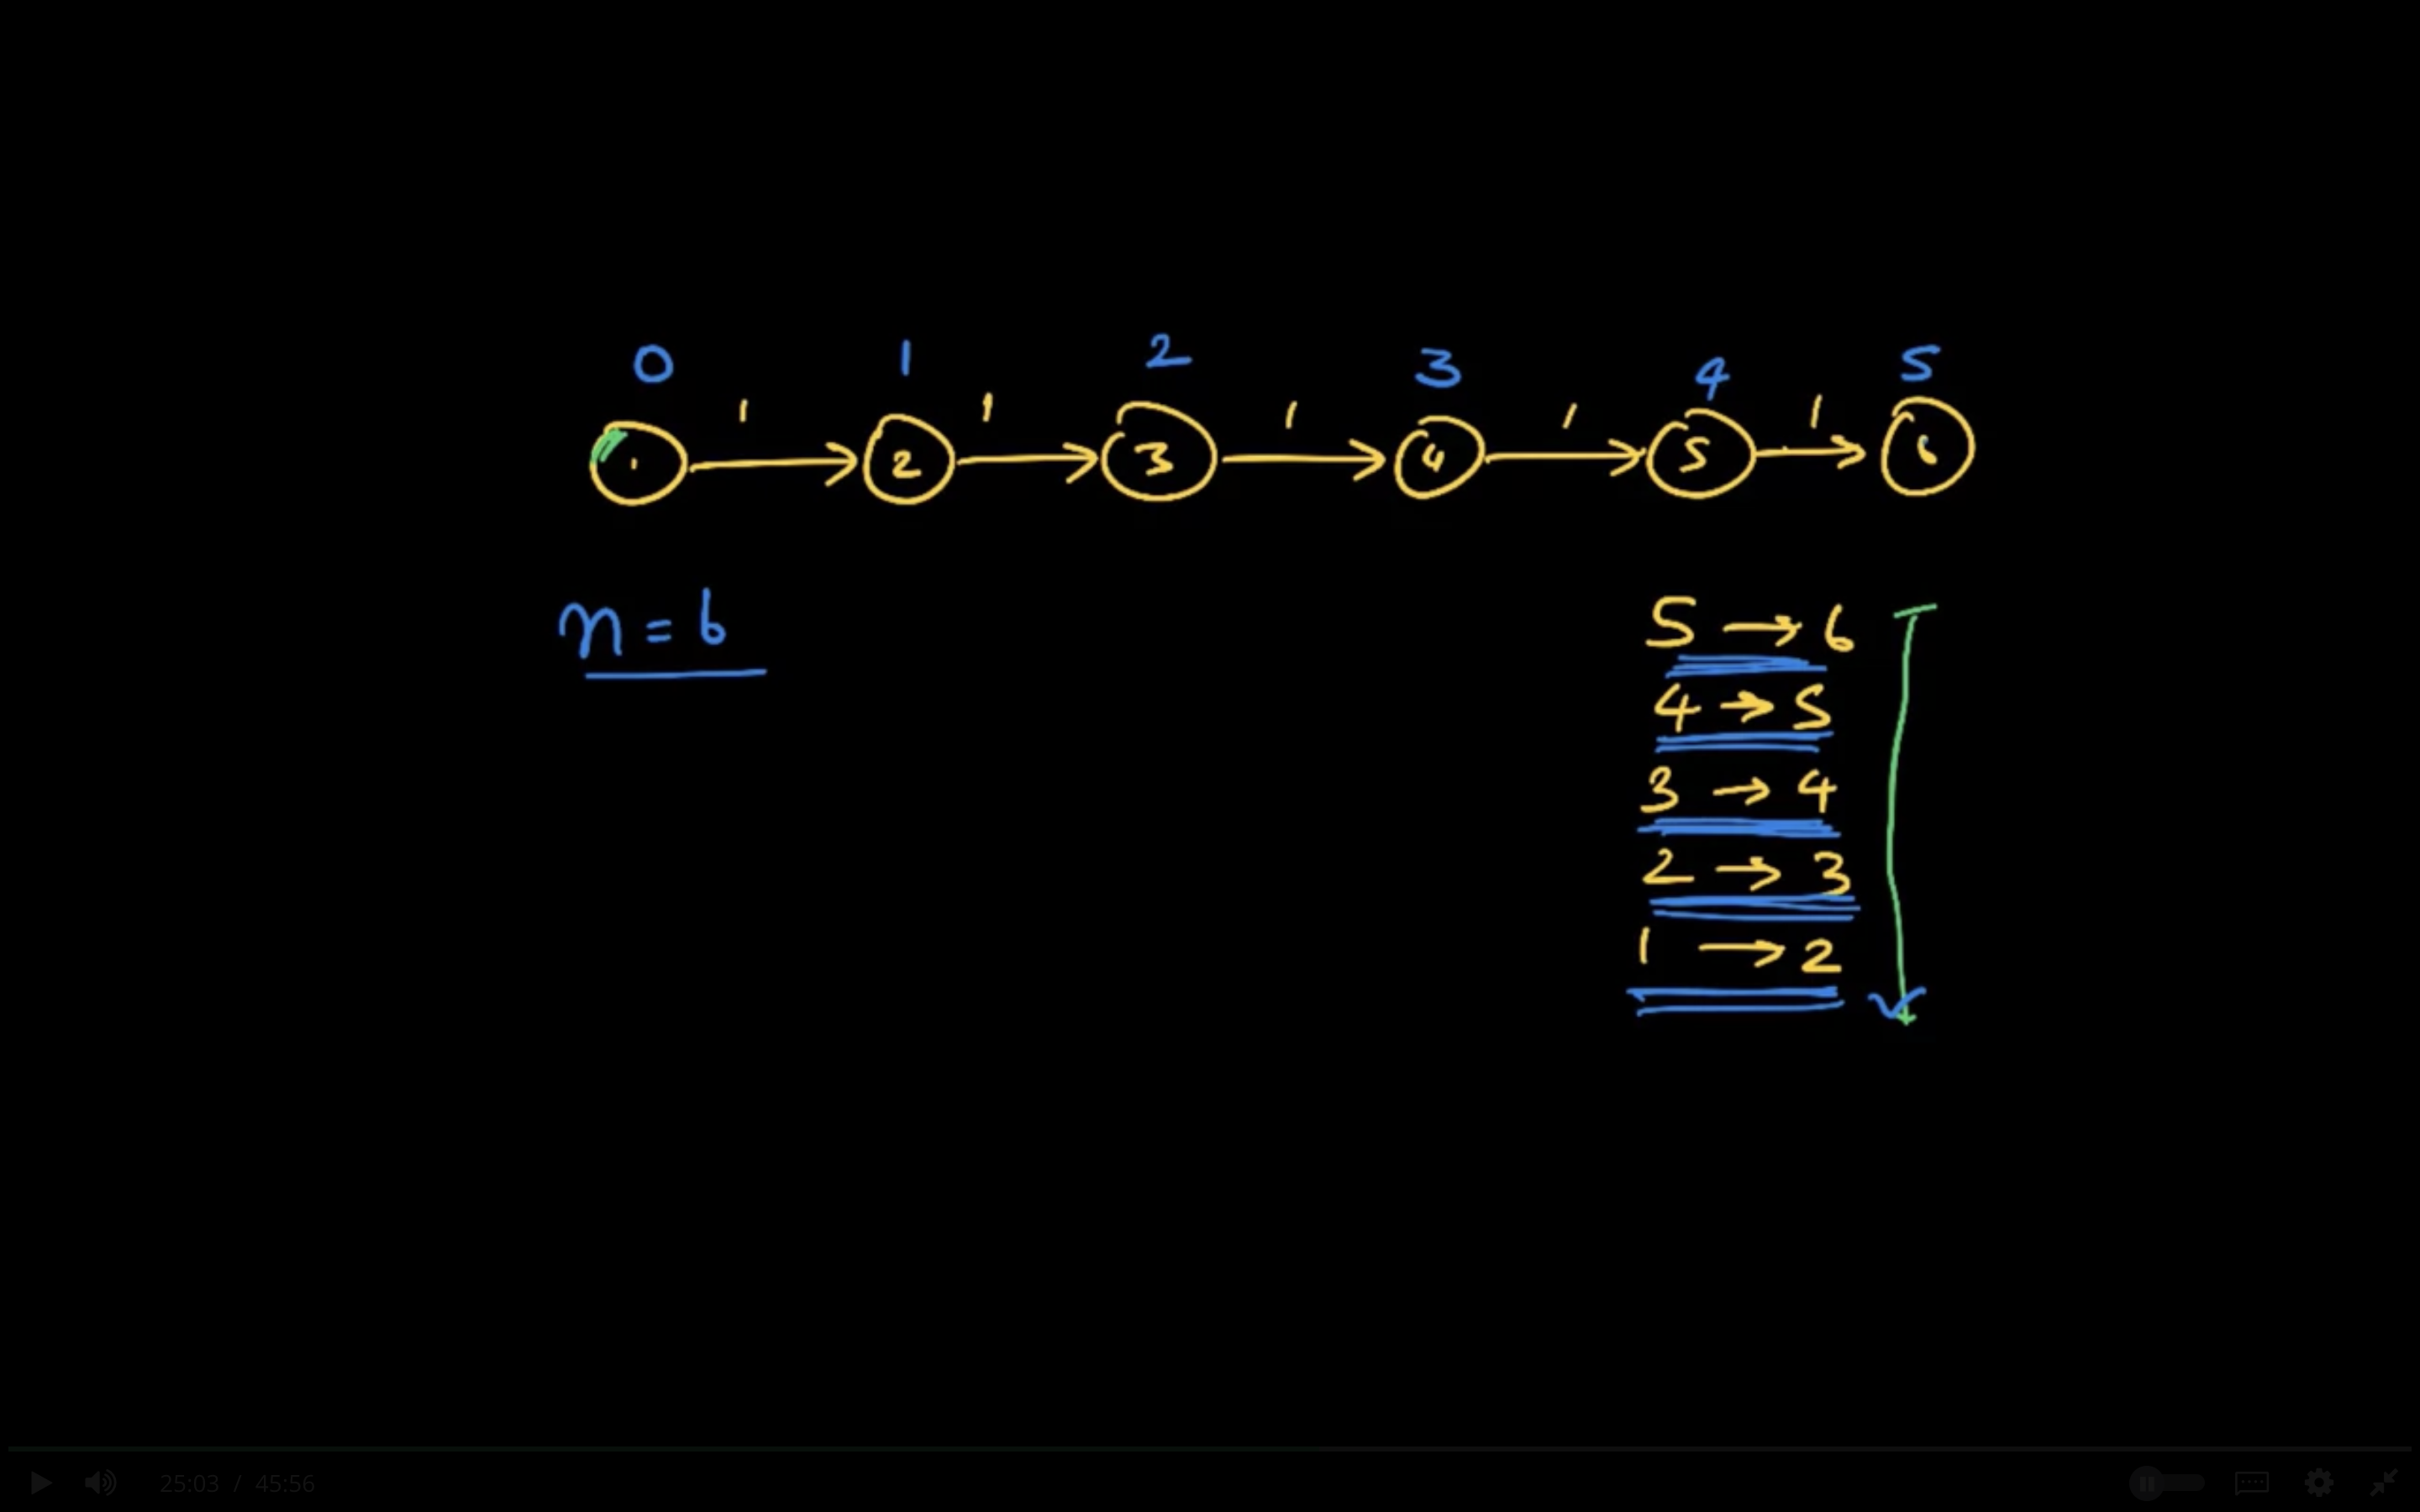 0 1 2 3 4 5
1 1 1 1 1
1 → 2 → 3 → 4 → 5 → 6
n = 6
5 → 6
4 → 5
3 → 4
2 → 3
1 → 2
25:03 / 45:56